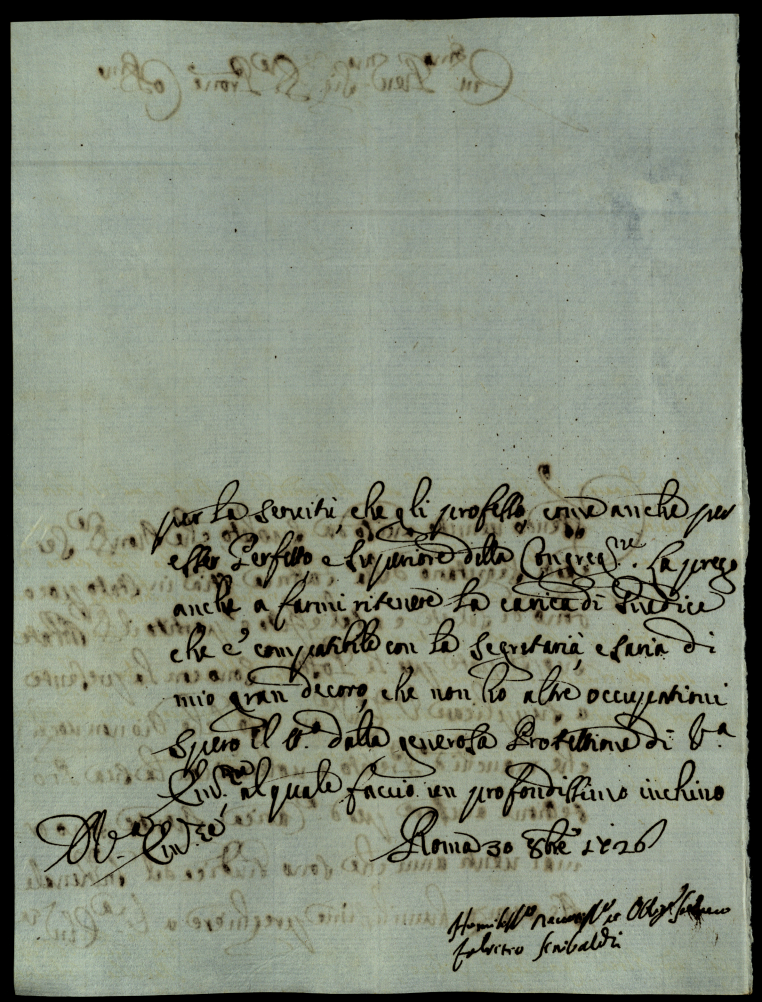 per la servitù, che gli professo, come anche per
esser Perfetto e Superiore della Congreg.ne. La prego
anche a farmi ritenere la carica di Giudice
che e' compatibile con la Segretaria, e saria di
mio gran decoro, che non ho altre occupationi
Spero il tt.o dalla generosa Protettione di V.a
Em.za, al quale faccio un profondissimo inchino
D V.a Em.za
Roma 30 8bre 1726
Humiliss.o Devotiss.o et Oblig.
Fabritio Sinibaldi